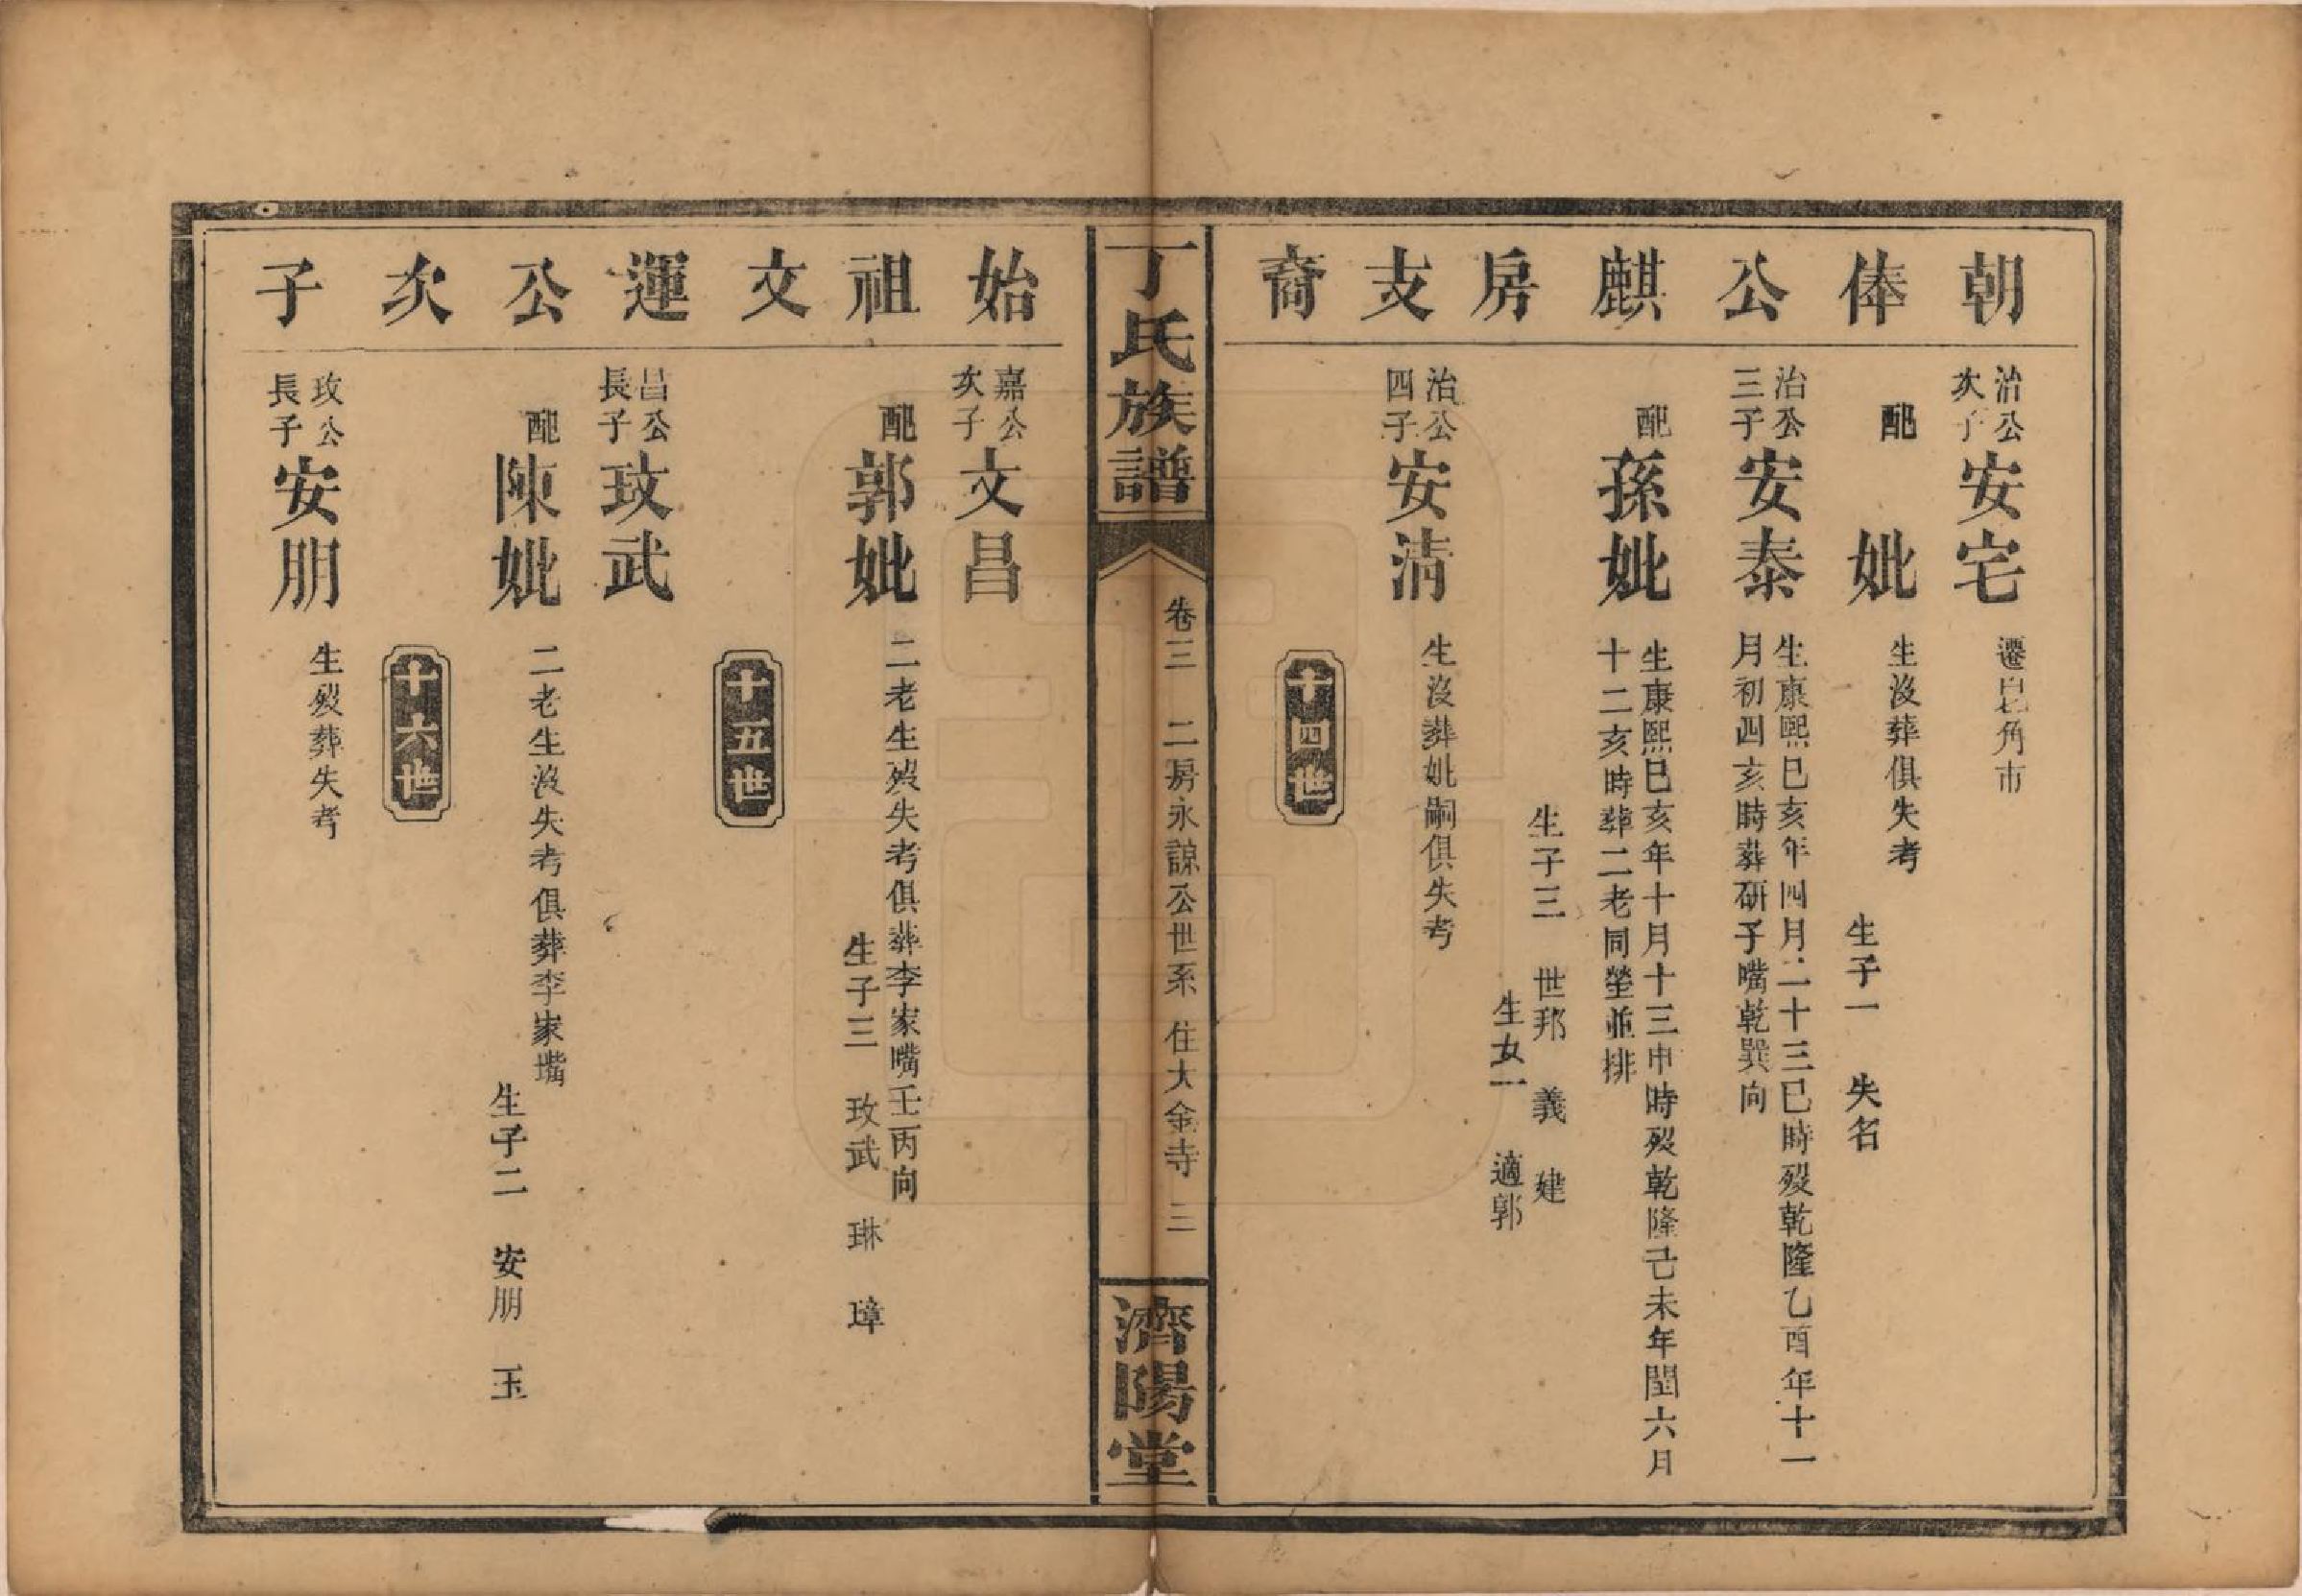 朝俸公麒房支裔
治公次子
安宅
遷皀角市
配 妣
生沒葬俱失考
生子一 失名
治公三子
安泰
生康熙己亥年四月二十三巳時歿乾隆乙酉年十一
月初四亥時葬硏子嘴乾巽向
配 孫妣
生康熙己亥年十月十三申時歿乾隆己未年閏六月
十二亥時葬二老同塋並排
生子三 世邦 義 建
生女一 適郭
治公四子
安清
生沒葬妣嗣俱失考
十四世
丁氏族譜
卷三 二房永諒公世系 住大金寺 三
濟陽堂
始祖文運公次子
嘉公次子
文昌
配 郭妣
二老生歿失考俱葬李家嘴壬丙向
生子三 玫武 琳 璋
十五世
昌公長子
玫武
配 陳妣
二老生沒失考俱葬李家嘴
生子二 安朋 玉
十六世
玫公長子
安朋
生歿葬失考